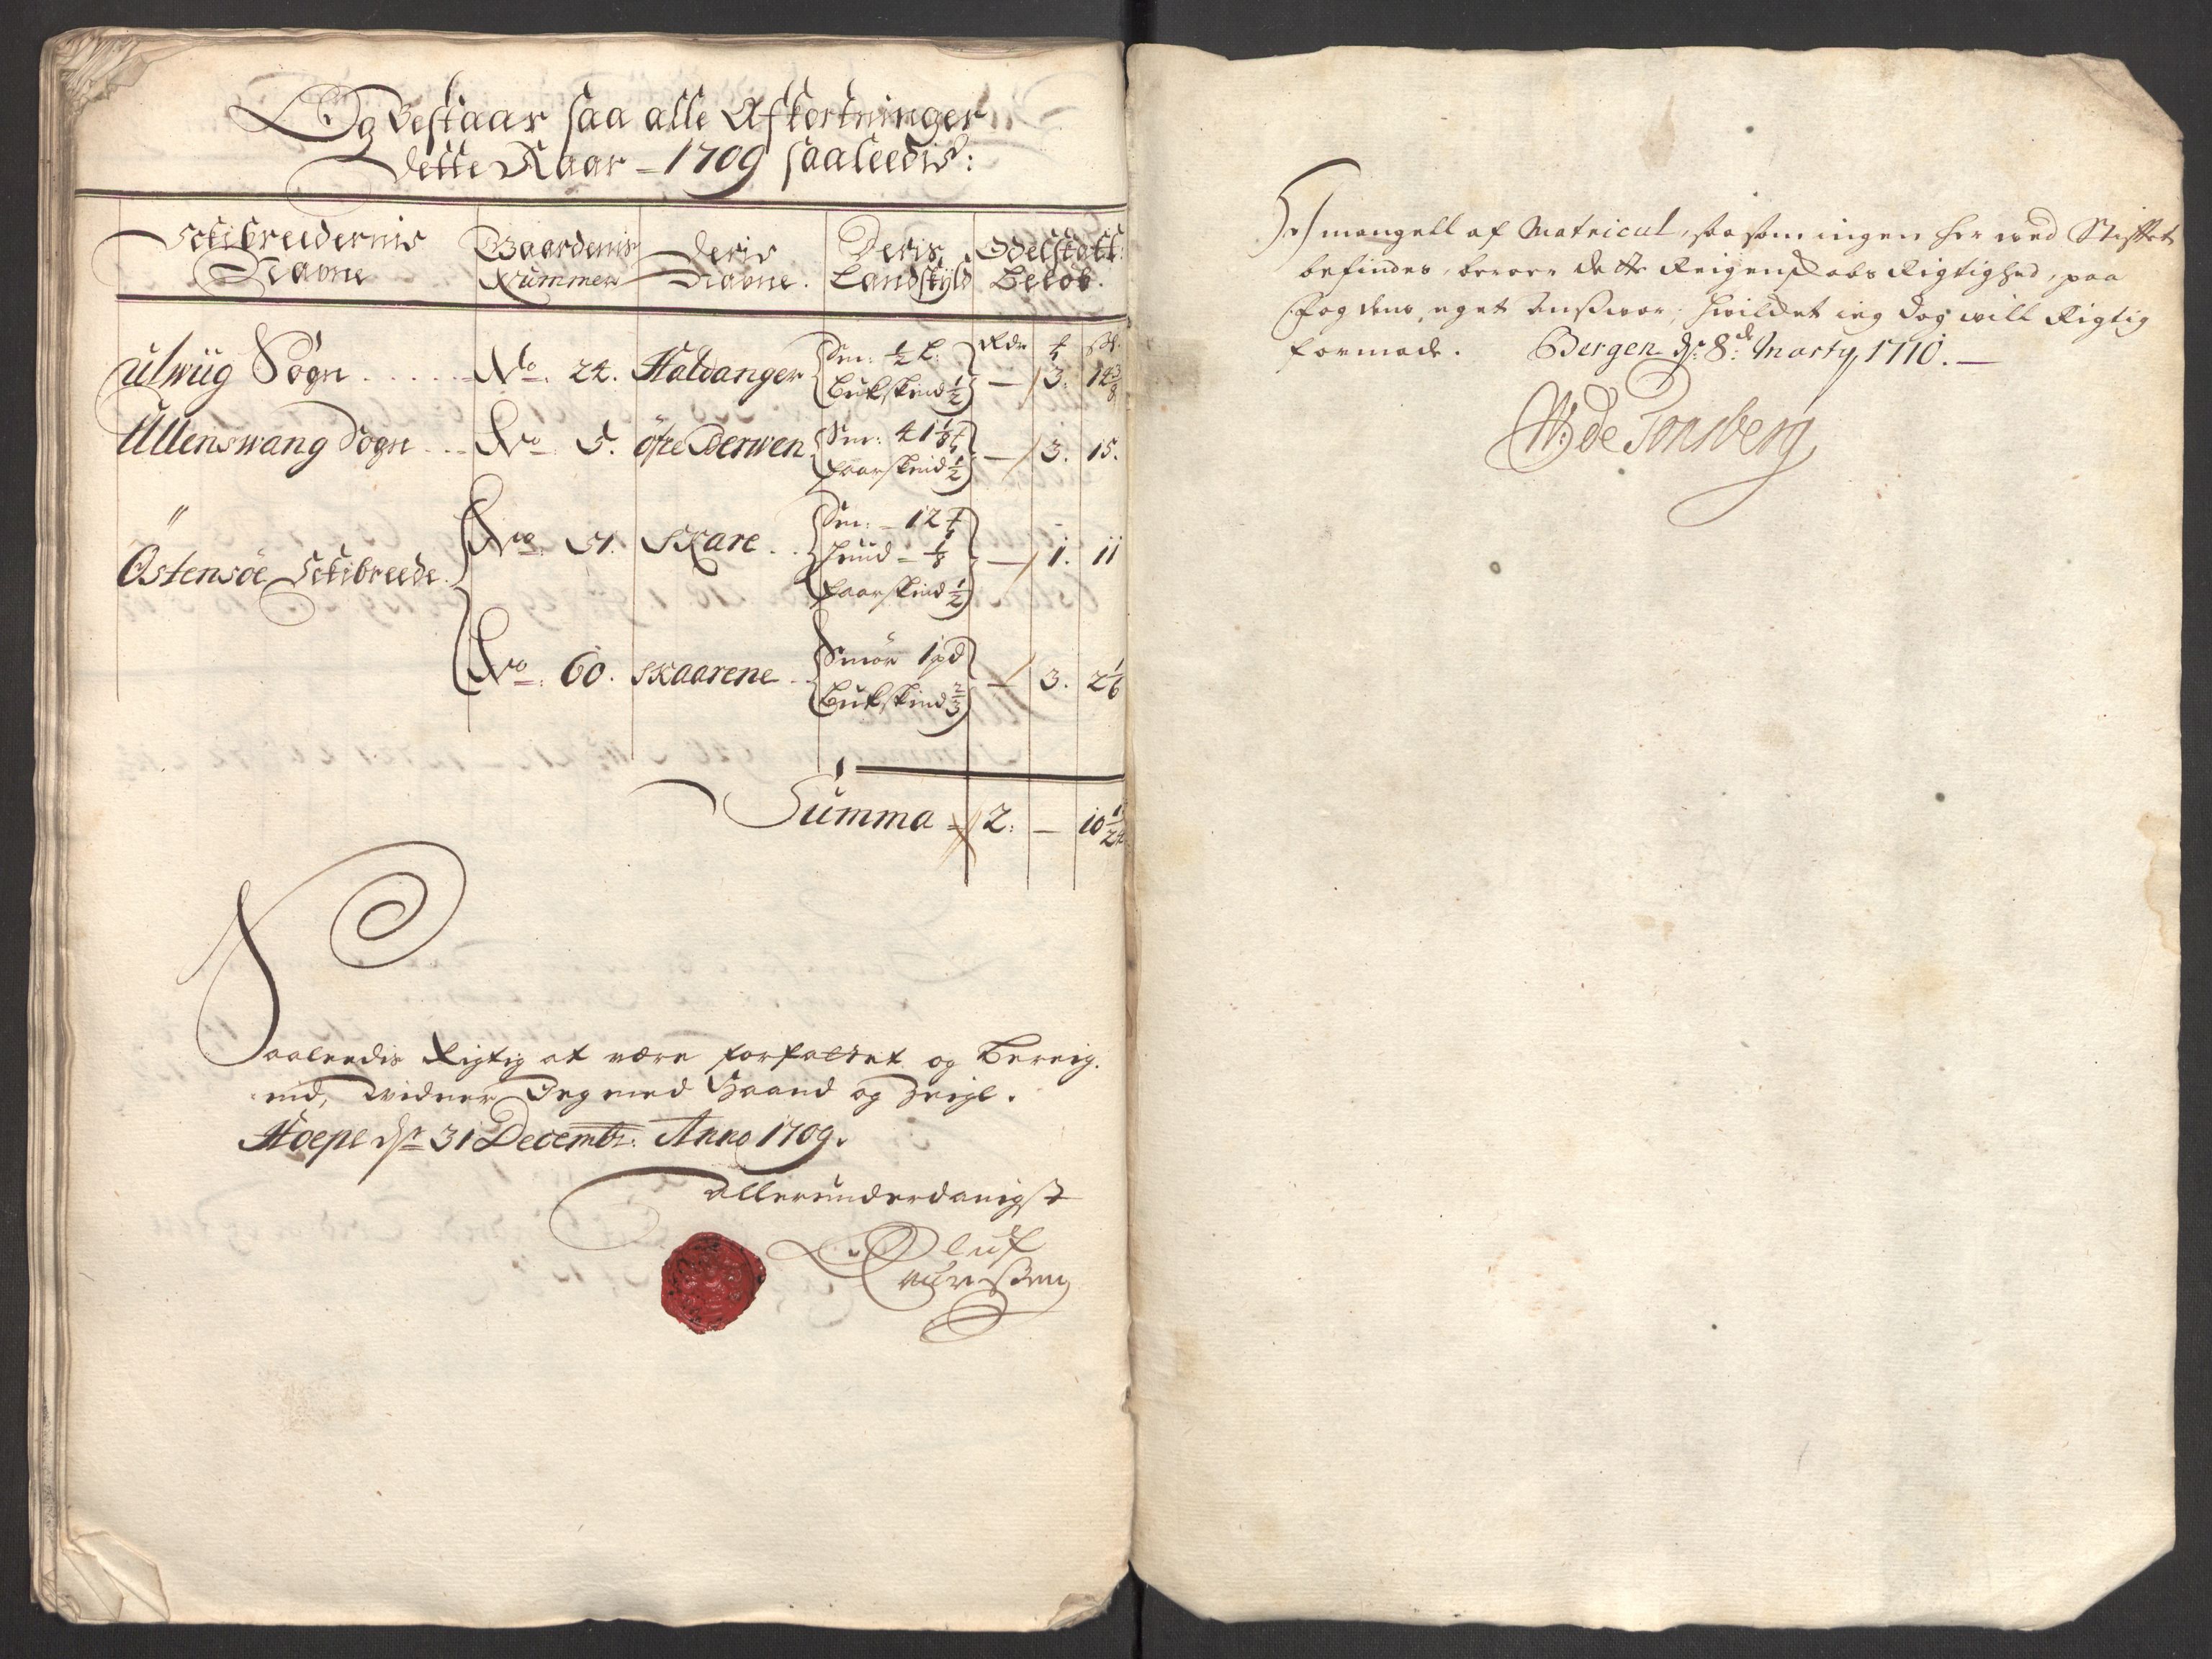 Og Bestaar saa alle Afkortninger
dette Aar - 1709 saaleedis:
Schibreedernis Navne
Gaardenis Nummer
deris Navne.
Deris Landskyld
Odelskatt: Beløb.
Rdr ß
Ulwiig Sogn No. 24. Haldanger Sm: ½ L: Bukskind ½ - 3. 14 3/8
Ullenswang Sogn No. 5. öfre Berwen Sm: 4 1/8 faarskind ½ - 3. 15.
Östensöe Schibreede No. 51. Skare Sm: - 12 huud - 1/8 faarskind ½ - 1. 11
No. 60. Skaarene Smör 1 pd Bukskind 2/3 - 3. 2 1/6
Summa 2. - 10 1/24
Saaleedis Rigtig at være forfattet og Bereig-
nid, Widner Jeg med Haand og Zeigl.
Hoepe dn 31 Decembr: Anno 1709.
Allerunderdanigst
Oluf
I mangell af Matricul, saasom ingen her wed Stifftet
befindes, beroer dette Reigenskabs Rigtighed, paa
Fogdens eget Answar, hwildet ieg dog will Rigtig
formode. Bergen dn 8de Marty 1710. -
W: de Tonsberg